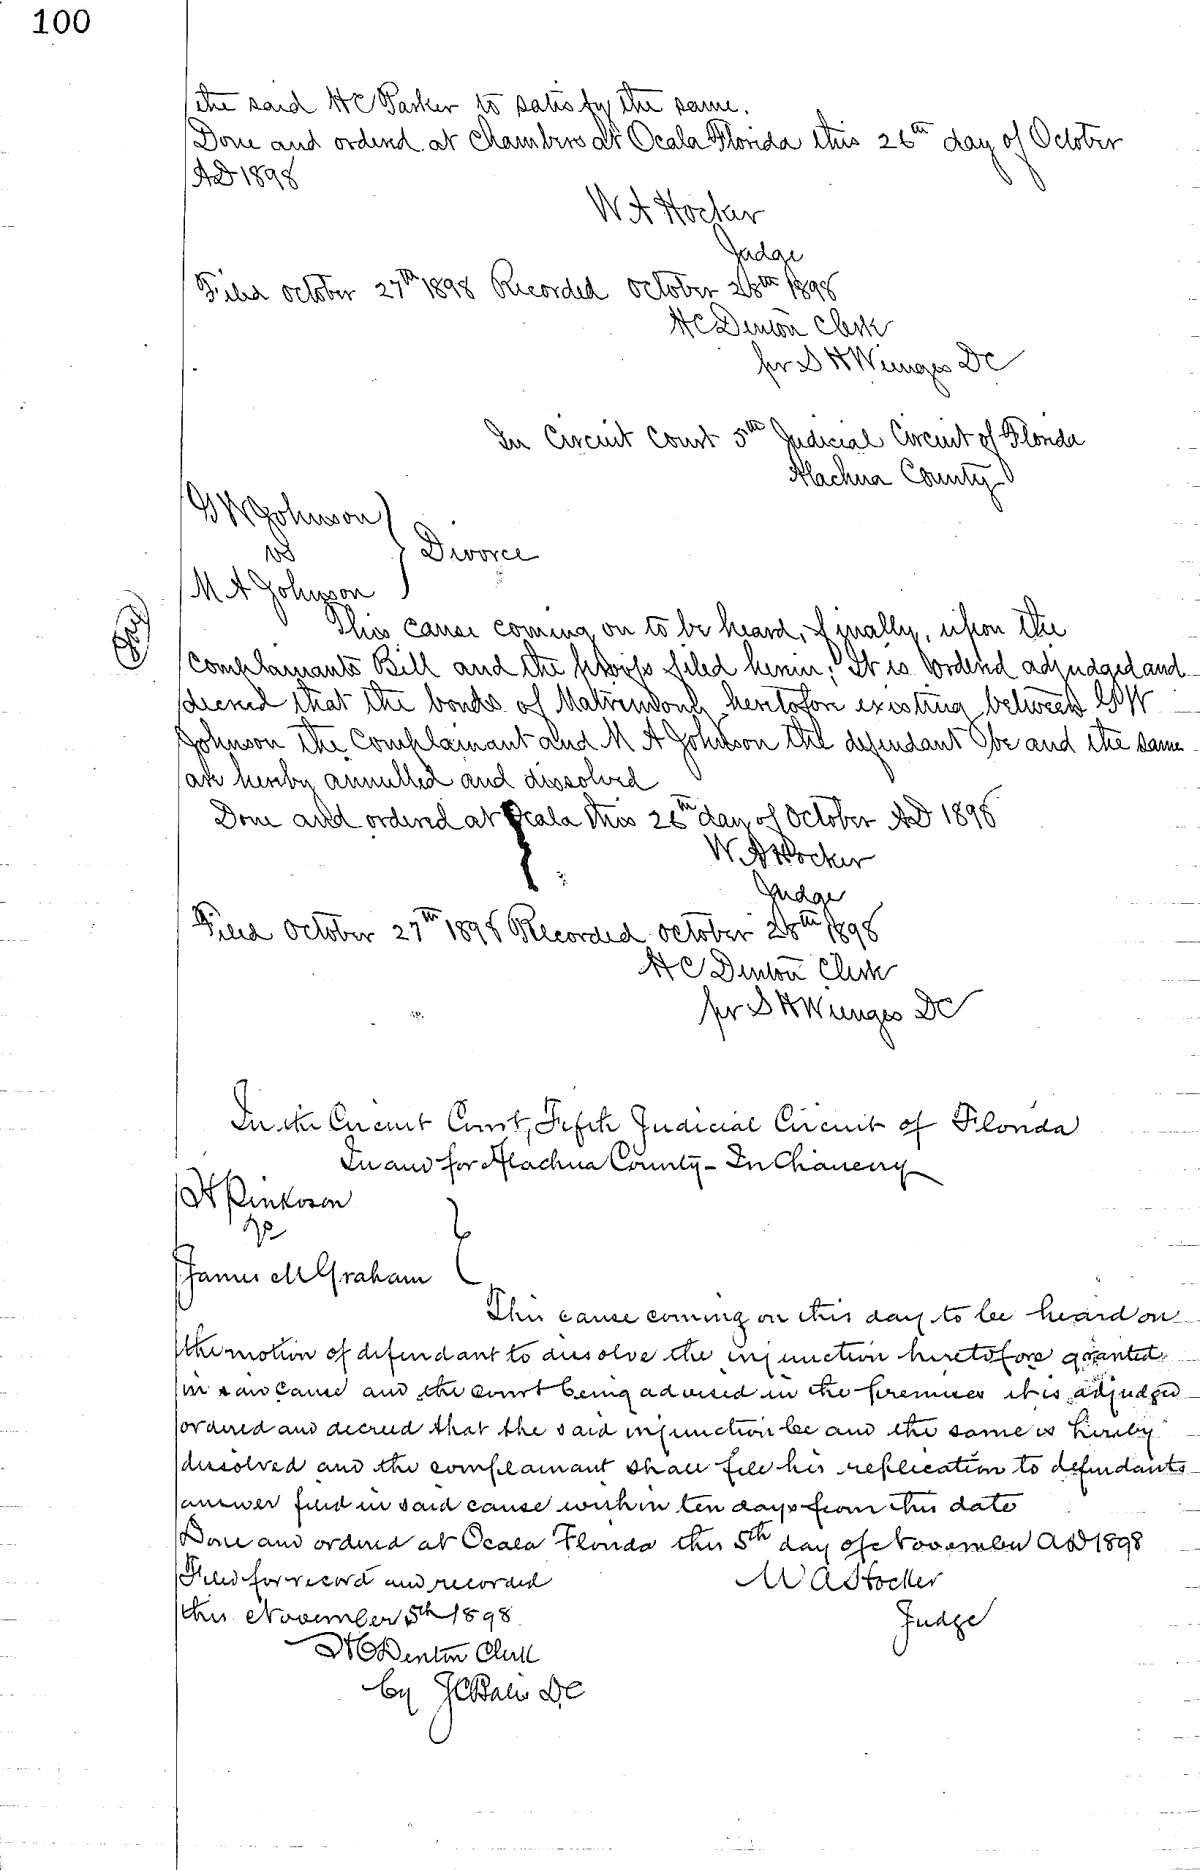 100
the said HC Parker to satisfy the same.
Done and ordered at Chambers at Ocala Florida this 26th day of October
AD 1898
W A Hocker
Judge
Filed October 27th 1898 Recorded October 28th 1898
HC Denton Clerk
pr S H Wienges DC
In Circuit Court 5th Judicial Circuit of Florida
Alachua County
G W Johnson
vs
Divorce
M A Johnson
This cause coming on to be heard, finally, upon the
Complainants Bill and the proofs filed herein; It is ordered adjudged and
decreed that the bonds of Matrimony heretofore existing between G W
Johnson the Complainant and M A Johnson the defendant be and the same
are hereby annulled and dissolved
Done and ordered at Ocala this 26th day of October AD 1898
W A Hocker
Judge
Filed October 27th 1898 Recorded October 28th 1898
H C Denton Clerk
pr S H Wienges DC
In the Circuit Court, Fifth Judicial Circuit of Florida
In and for Alachua County - In Chancery
H Pinkoson
vs
James M Graham
This cause coming on this day to be heard on
the motion of defendant to dissolve the injunction heretofore granted
in said cause and the court being advised in the premises it is adjudged
ordered and decreed that the said injunction be and the same is hereby
dissolved and the complainant shall file his replication to defendants
answer filed in said cause within ten days from this date
Done and ordered at Ocala Florida this 5th day of November AD 1898
Filed for record and recorded
W A Hocker
this November 5th 1898.
Judge
H C Denton Clerk
by J C DC